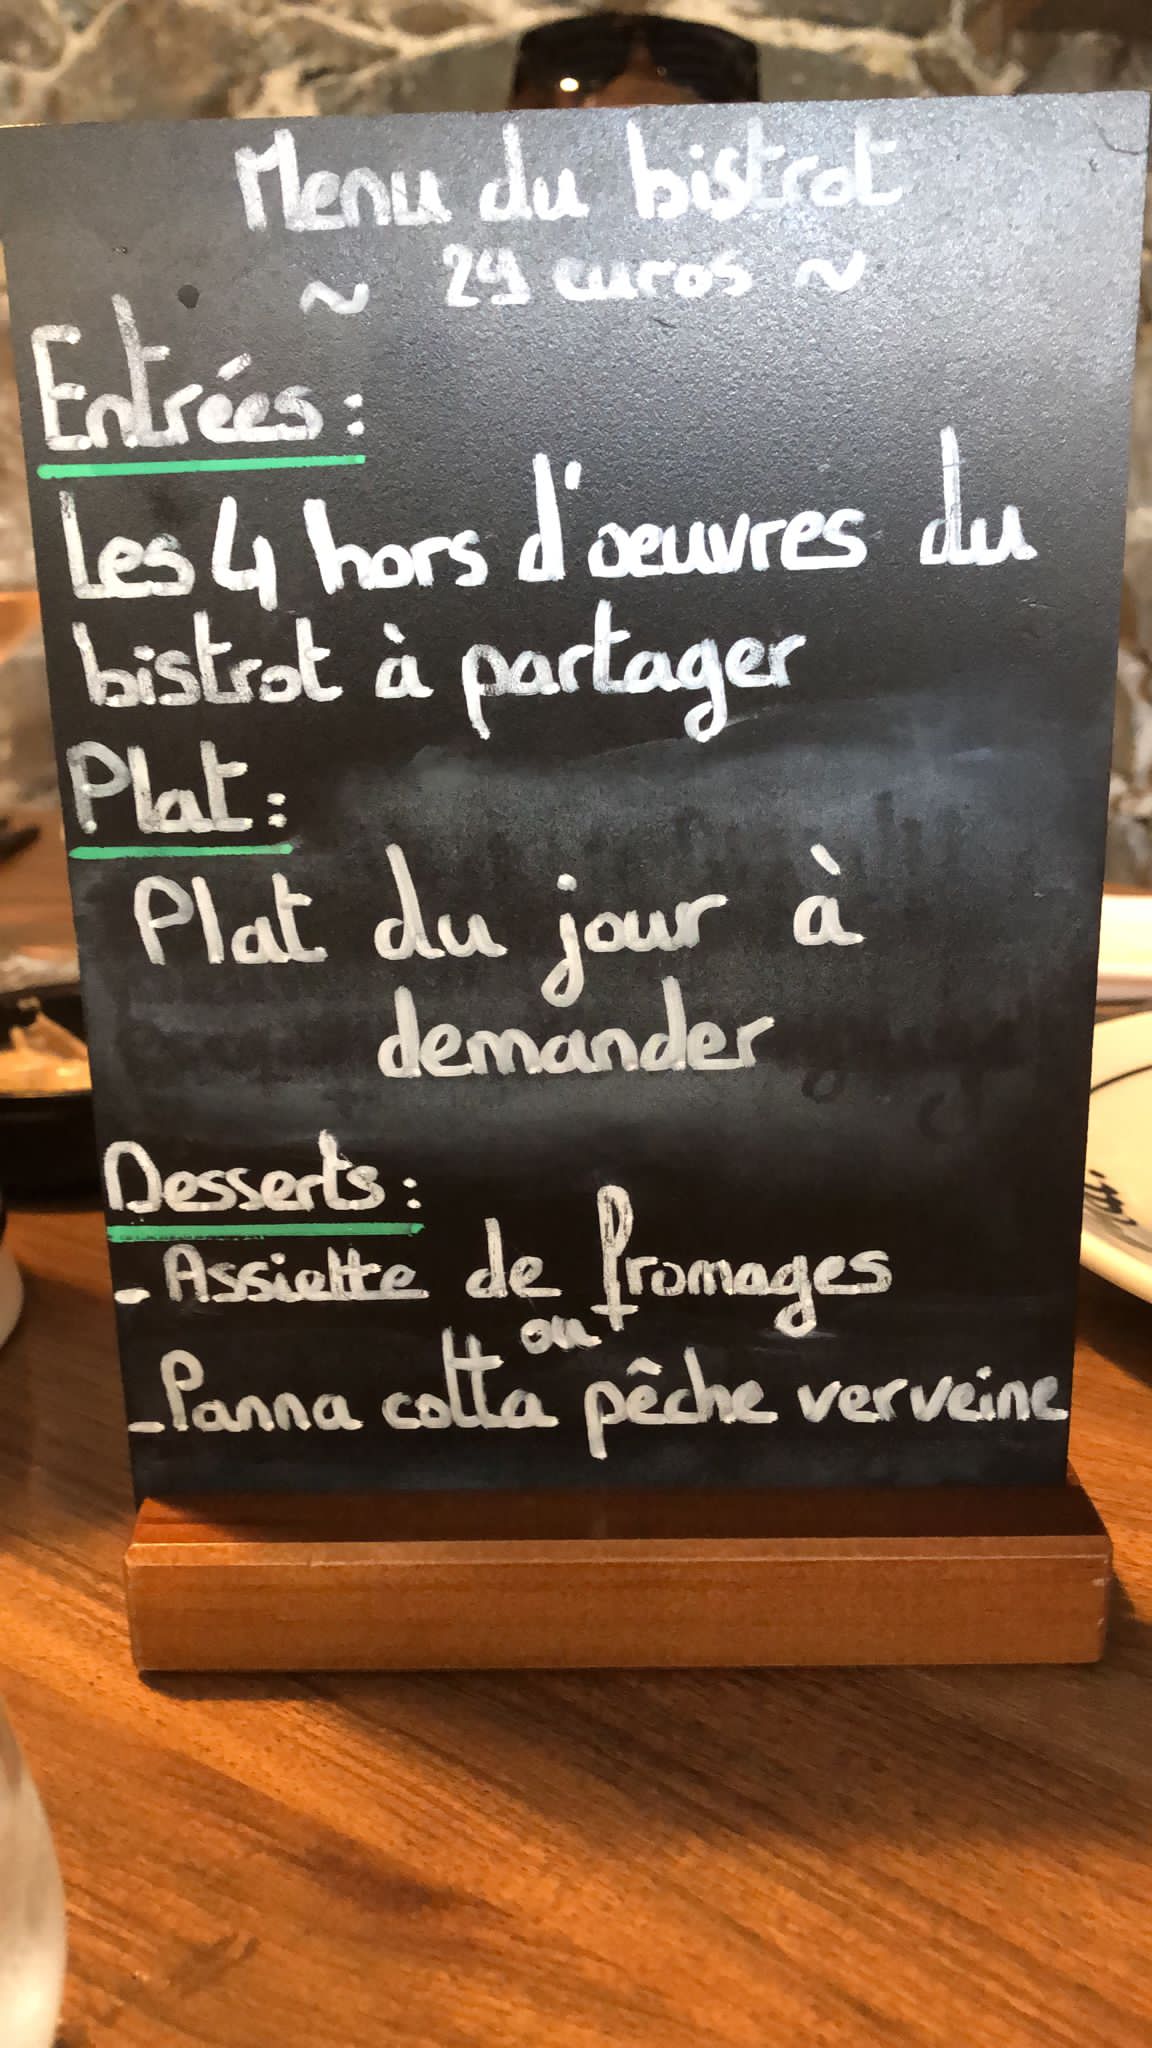 Menu du bistrot
~ 29 euros ~
Entrées :
Les 4 hors d'oeuvres du
bistrot à partager
Plat :
Plat du jour à
demander
Desserts :
- Assiette de fromages
ou
- Panna cotta pêche verveine